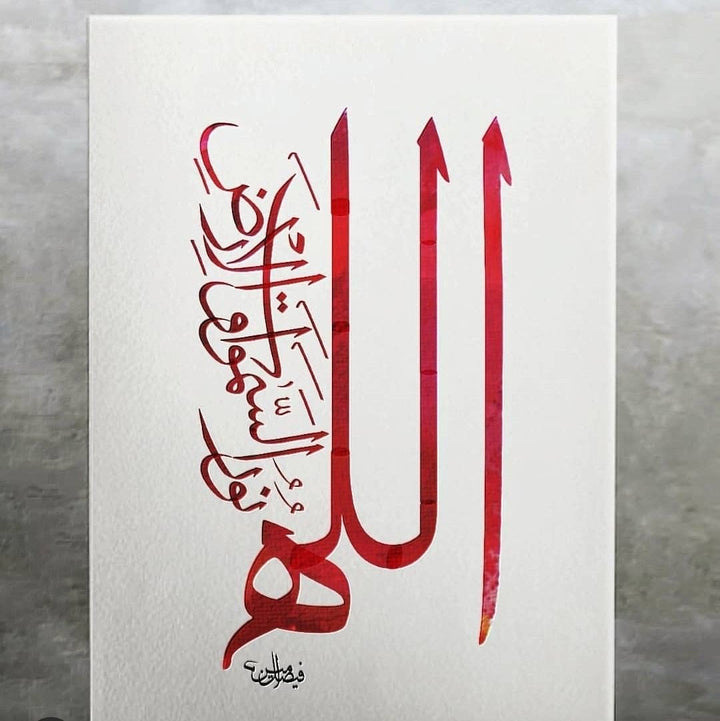 الله
نُورُ السَّمَٰوَٰتِ وَالْأَرْضِ